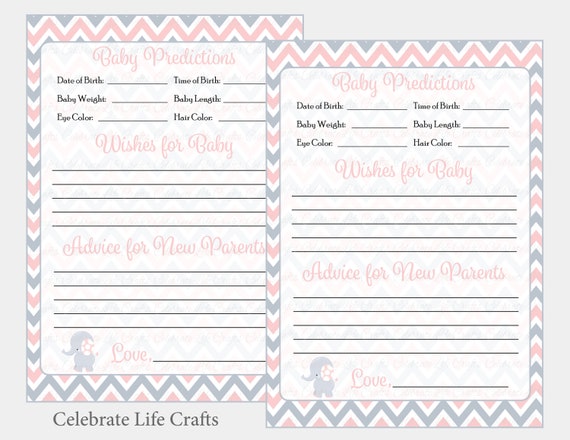 Baby Predictions
Date of Birth: Time of Birth:
Baby Weight: Baby Length:
Eye Color: Hair Color:
Wishes for Baby
Advice for New Parents
Love,
Baby Predictions
Date of Birth: Time of Birth:
Baby Weight: Baby Length:
Eye Color: Hair Color:
Wishes for Baby
Advice for New Parents
Love,
Celebrate Life Crafts